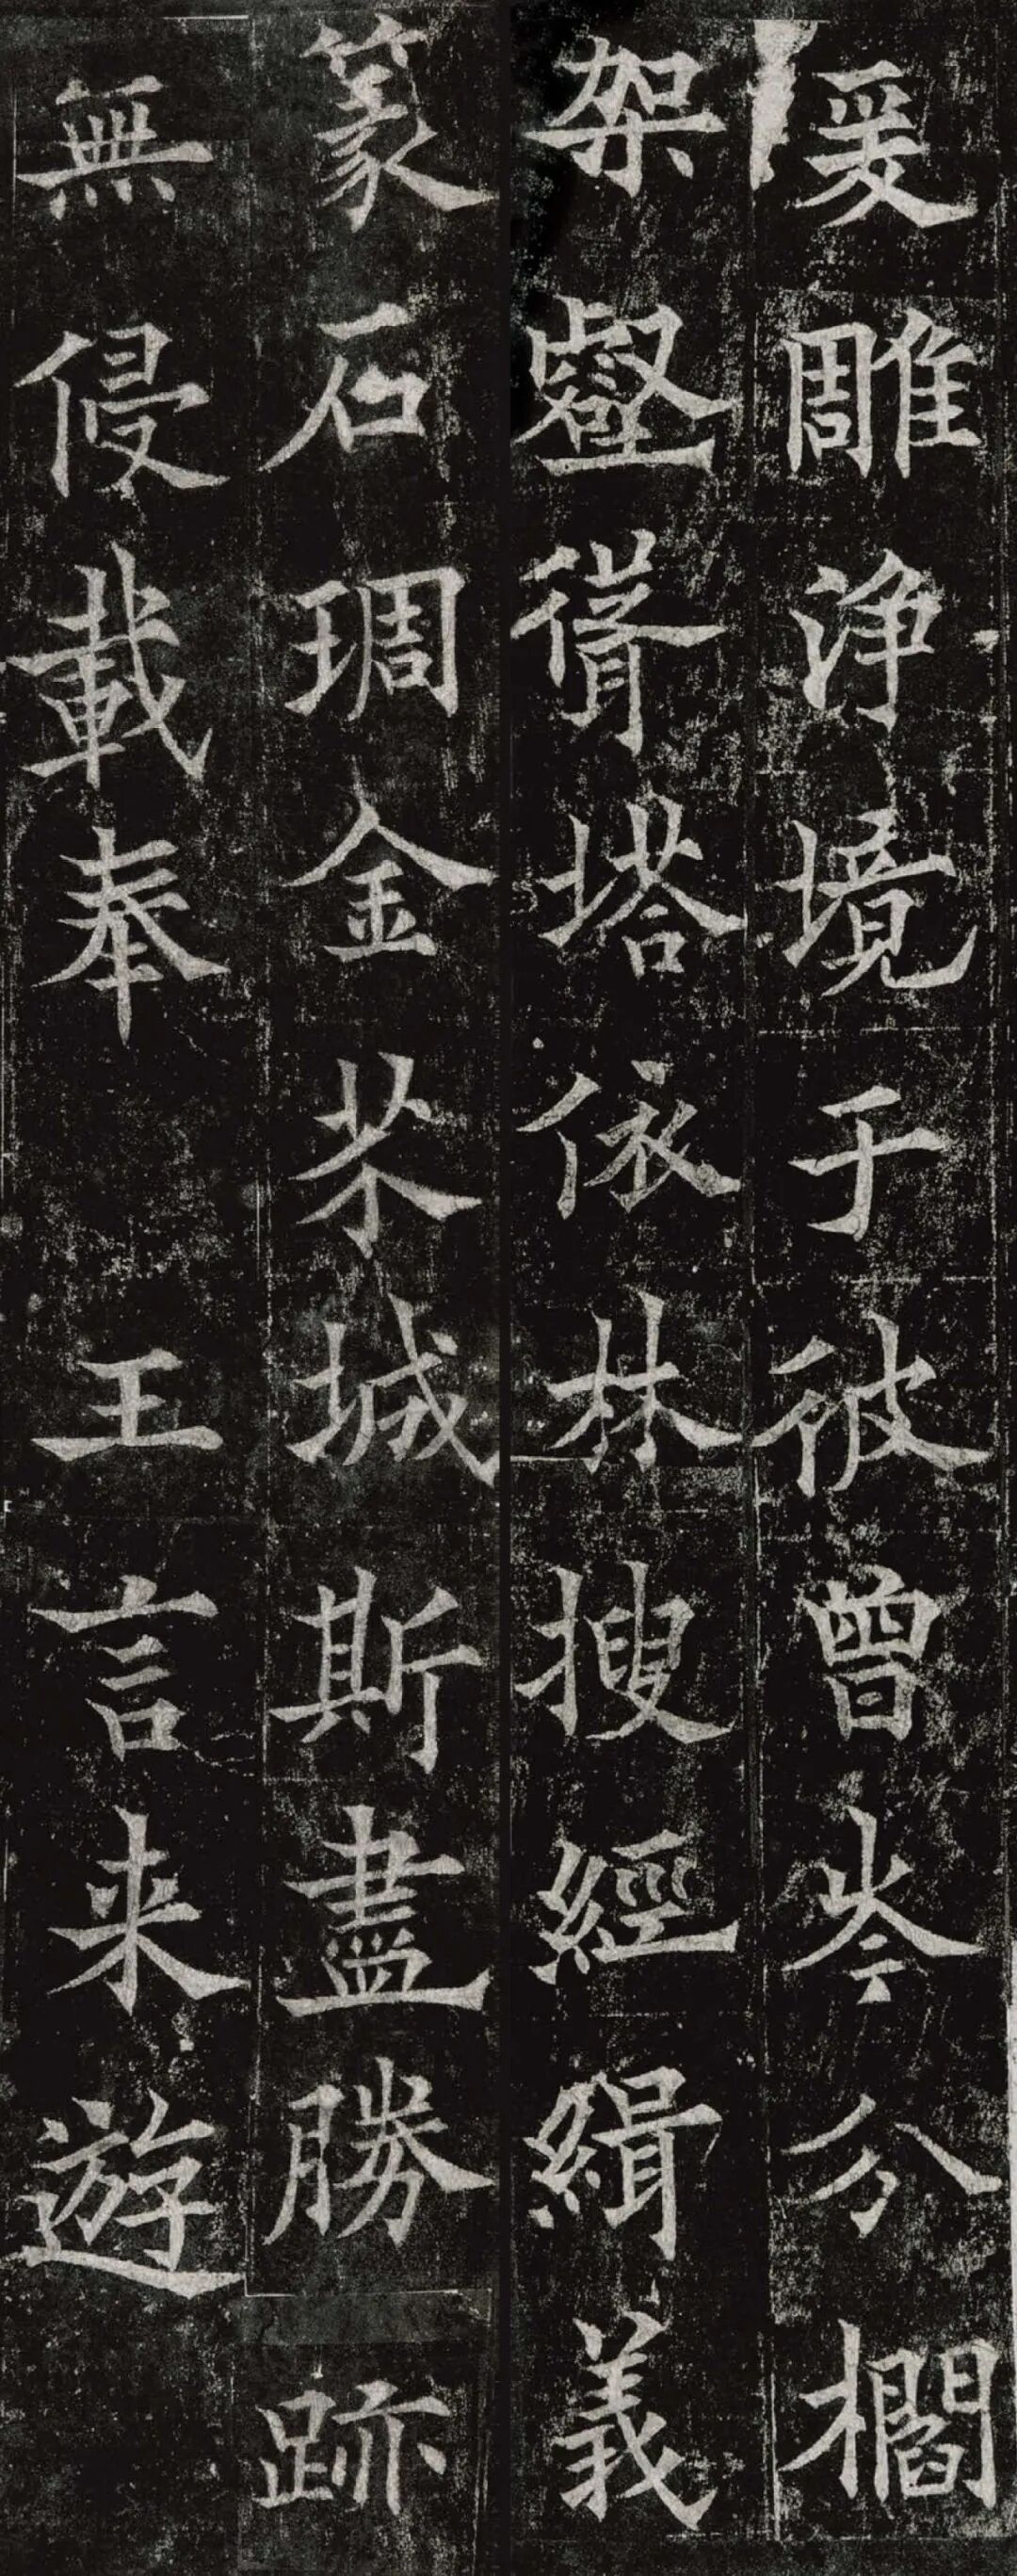 爰雕淨境于彼曾岑分櫩
架壑聳塔依林搜經緝義
篆石琱金芥城斯盡勝跡
無侵載奉王言来遊